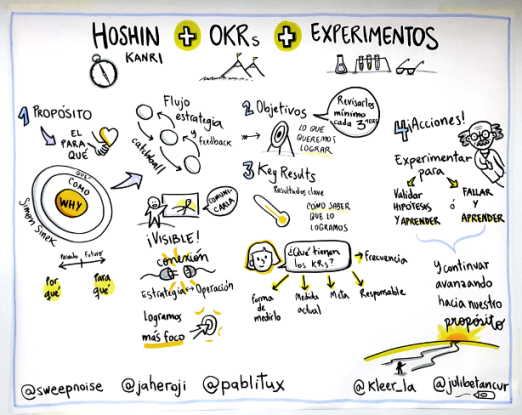 HOSHIN + OKRs + EXPERIMENTOS
KANRI
1 PROPÓSITO
EL
PARA
QUÉ
QUÉ
CÓMO
WHY
Simon Sinek
Pasado
Futuro
Por
qué
Para
qué
Flujo
estrategia
y
feedback
catchball
COMUNI-
CARLA
¡VISIBLE!
conexión
Estrategia ↔ Operación
Logramos
más foco
2 Objetivos
Revisarlos
mínimo
cada 3 meses
LO QUE
QUEREMOS
LOGRAR
3 Key Results
Resultados clave
CÓMO SABER
QUE LO
LOGRAMOS
¿Qué tienen
los KRs?
Frecuencia
Forma
de
medirlo
Medida
actual
Meta
Responsable
4 ¡Acciones!
Experimentar
para
Validar
HIPÓTESIS
Y APRENDER
ó
FALLAR
y
APRENDER
Y continuar
avanzando
hacia nuestro
propósito
@sweepnoise @jaheroji @pablitux @Kleer_la @julibetancur